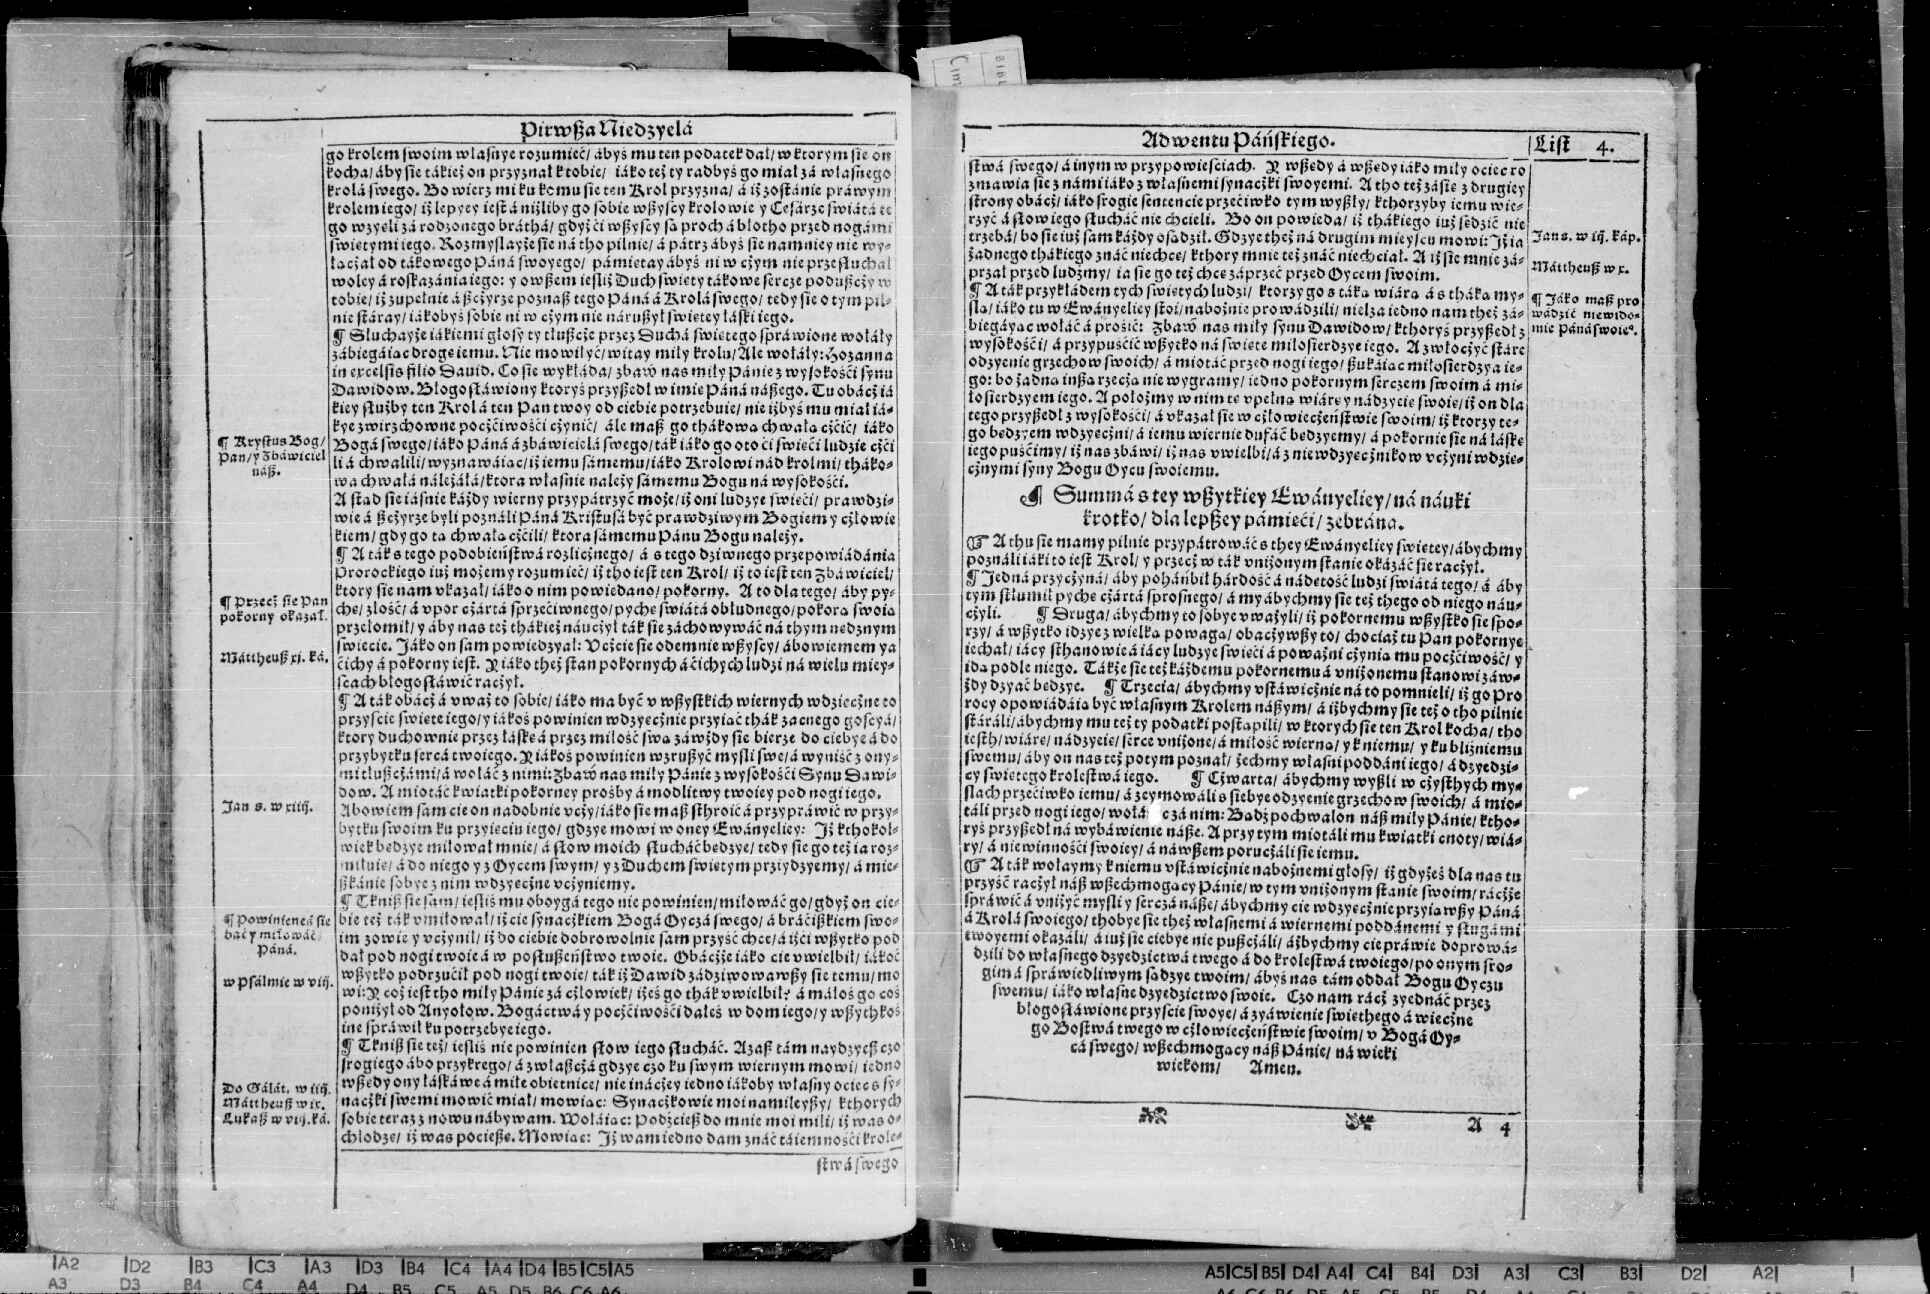 Pirwßa Niedzyelá
go krolem swoim własnye rozumieć/ ábyś mu ten podatek dał/ w ktorym sie on
kocha/ áby sie tákież on przyznał k tobie/ iáko też ty radbyś go miał zá własnego
krolá swego. Bo wierz mi ku komu sie ten Krol przyzna/ á iż zostánie práwym
krolem iego/ iż lepyey iest á niżliby go sobie wßyscy krolowie y Cesárze swiátá te
go wzyeli zá rodzonego brátha/ gdyż ći wßyscy są proch á błotho przed nogámi
swiętymi iego. Rozmyslayże sie ná tho pilnie/ á pátrz ábyś sie namniey nie wy-
łaczał od tákowego Páná swoyego/ pámiętay ábyś ni w cżym nie przesłuchał
woley á roskazánia iego: y owßem iesliż Duch swięty tákowe serce podußcży w
tobie/ iż zupełnie á ßcżyrze poznaß tego Páná á Krolá swego/ tedy sie o tym pil-
nie stáray/ iákobyś sobie ni w cżym nie nárußył swiętey łáski iego.
¶ Słuchayże iákiemi głosy ty tłußcże przez Duchá swiętego spráwione wołáły
zábiegáiąc drogę iemu. Nie mowiłyć/ witay miły krolu/ Ale wołáły: Hozanna
in excelsis filio Dauid. Co sie wykłáda/ zbaw nas miły Pánie z wysokośći synu
Dawidow. Błogosłáwiony ktoryś przyßedł w imię Páná náßego. Tu obácż iá
kiey służby ten Krol á ten Pan twoy od ciebie potrzebuie/ nie iżbyś mu miał iá-
kye zwirzchowne pocżćiwośći cżynić/ ále maß go thákową chwałą cżćić/ iáko
Bogá swego/ iáko Páná á zbáwicielá swego/ ták iáko go oto ći swięći ludzie cżći
li á chwalili/ wyznawáiąc/ iż iemu sámemu/ iáko Krolowi nád krolmi/ tháko-
wa chwałá należáłá/ ktora własnie należy sámemu Bogu ná wysokośći.
A stąd sie iáśnie káżdy wierny przypátrzyć może/ iż oni ludzye swięći/ prawdzi-
wie á ßcżyrze byli poználi Páná Kristusá być prawdziwym Bogiem y cżłowie
kiem/ gdy go tą chwałą cżćili/ ktora sámemu Pánu Bogu należy.
¶ A ták s tego podobieństwá rozlicżnego/ á s tego dziwnego przepowiádánia
Prorockiego iuż możemy rozumieć/ iż tho iest ten Krol/ iż to iest ten Zbáwiciel/
ktory sie nam vkazał/ iáko o nim powiedano/ pokorny. A to dla tego/ áby py-
chę/ złość/ á vpor cżártá sprzećiwnego/ pychę swiátá obłudnego/ pokorą swoią
przełomił/ y áby nas też thákież náucżył ták sie záchowywáć ná thym nędznym
swiecie. Jáko on sam powiedzyał: Vcżcie sie odemnie wßyscy/ ábowiemem ya
ćichy á pokorny iest. Y iáko theż stan pokornych á ćichych ludzi ná wielu miey-
scach błogosłáwić racżył.
¶ A ták obácż á vważ to sobie/ iáko ma być v wßystkich wiernych wdzięcżne to
przyście swięte iego/ y iákoś powinien wdzyęcżnie przyiąć thák zacnego gościá/
ktory duchownie przez łáskę á przez miłość swą záwżdy sie bierze do ciebye á do
przybytku sercá twoiego. Y iákoś powinien wzrußyć mysli swe/ á wyniść z ony-
mi tłußcżámi/ á wołáć z nimi: Zbaw nas miły Pánie z wysokośći Synu Dawi-
dow. A miotáć kwiatki pokorney prośby á modlitwy twoiey pod nogi iego.
Abowiem sam cie on nadobnie vcży/ iáko sie maß sthroić á przypráwić w przy-
bytku swoim ku przyięciu iego/ gdzye mowi w oney Ewányeliey: Iż kthokol-
wiek będzye miłował mnie/ á słow moich słucháć będzye/ tedy sie go też ia roz-
miłuię/ á do niego y z Oycem swym/ y z Duchem swiętym prziydzyemy/ á mie-
ßkánie sobye z nim wdzyęcżne vcżyniemy.
¶ Tkniß sie sam/ iesliś mu oboygá tego nie powinien/ miłowáć go/ gdyż on cie-
bie też ták vmiłował/ iż cie synacżkiem Bogá Oycá swego/ á bráćißkiem swo-
im zowie y vcżynił/ iż do ciebie dobrowolnie sam przyść chce/ á iśći wßytko pod
dał pod nogi twoie á w posłußeństwo twoie. Obacżże iáko cie vwielbił/ iákoć
wßytko podrzucił pod nogi twoie/ ták iż Dawid zádziwowawßy sie temu/ mo
wi: Y coż iest tho miły Pánie zá cżłowiek/ iżeś go thák vwielbił? á máłoś go coś
poniżył od Anyołow. Bogáctwá y pocżćiwośći dałeś w dom iego/ y wßythkoś
ine spráwił ku potrzebye iego.
¶ Tkniß sie też/ iesliś nie powinien słow iego słucháć. Azaß tám naydzyeß czo
srogiego ábo przykrego/ á zwłaßcżá gdzye czo ku swym wiernym mowi/ iedno
wßędy ony łáskáwe á miłe obietnice/ nie inácżey iedno iákoby własny ociec s sy-
nacżki swemi mowić miał/ mowiąc: Synacżkowie moi namileyßy/ kthorych
sobie teraz z nowu nábywam. Wołáiąc: Podźcieß do mnie moi mili/ iż was o-
chłodzę/ iż was pocießę. Mowiąc: Iż wam iedno dam znáć táiemnośći krole-
stwá swego
¶ Krystus Bog/
Pan/ y Zbáwiciel
náß.
¶ Przecż sie Pan
pokorny okazał.
Máttheuß xj. ká.
Jan s. w xiiij.
¶ Powinienes sie
bać y miłowáć
Páná.
w Psálmie w viij.
Do Gálát. w iiij.
Máttheuß w ix.
Lukaß w viij. ká.
Adwentu Páńskiego.
List 4.
stwá swego/ á inym w przypowieściach. Y wßędy á wßędy iáko miły ociec ro
zmawia sie z námi iáko z własnemi synacżki swoyemi. A tho też zásie z drugiey
strony obácż/ iáko srogie sentencie przećiwko tym wyßły/ kthorzyby iemu wie-
rzyć á słow iego słucháć nie chcieli. Bo on powieda/ iż thákiego iuż sędzić nie
trzebá/ bo sie iuż sam káżdy osądził. Gdzye theż ná drugim mieyscu mowi: Iż ia
żadnego thákiego znáć niechcę/ kthory mnie też znáć niechciał. A iż sie mnie zá-
przał przed ludźmy/ ia sie go też chcę záprzeć przed Oycem swoim.
¶ A ták przykłádem tych swiętych ludzi/ ktorzy go s táką wiárą á s tháką my-
slą/ iáko tu w Ewányeliey stoi/ nabożnie prowádzili/ nielza iedno nam theż zá-
biegáyąc wołáć á prosić: Zbaw nas miły synu Dawidow/ kthoryś przyßedł z
wysokośći/ á przypuśćić wßytko ná swięte miłosierdzye iego. A zwłocżyć stáre
odzyenie grzechow swoich/ á miotáć przed nogi iego/ ßukáiąc miłosierdzya ie-
go: bo żadną inßą rzecżą nie wygramy/ iedno pokornym serczem swoim á mi-
łosierdzyem iego. A położmy w nim tę vpełną wiárę y nádzyeię swoię/ iż on dla
tego przyßedł z wysokośći/ á vkazał sie w cżłowiecżeństwie swoim/ iż ktorzy te-
go będzyem wdzyęcżni/ á iemu wiernie dufáć będzyemy/ á pokornie sie ná łáskę
iego puśćimy/ iż nas zbáwi/ iż nas vwielbi/ á z niewdzyęcżnikow vcżyni wdzię-
cżnymi syny Bogu Oycu swoiemu.
¶ Summá s tey wßytkiey Ewányeliey/ ná náuki
krotko/ dla lepßey pámięći/ zebrána.
☞ A thu sie mamy pilnie przypátrowáć s they Ewányeliey swiętey/ ábychmy
poználi iáki to iest Krol/ y przecż w ták vniżonym stanie okázáć sie racżył.
¶ Jedná przycżyná/ áby pohańbił hárdość á nádętość ludzi swiátá tego/ á áby
tym stłumił pychę cżártá sprosnego/ á my ábychmy sie też thego od niego náu-
cżyli. ¶ Druga/ ábychmy to sobye vważyli/ iż pokornemu wßystko sie spo-
rzy/ á wßytko idzye z wielką powagą/ obacżywßy to/ chociaż tu Pan pokornye
iechał/ iácy sthanowie á iácy ludzye swięći á poważni cżynią mu pocżćiwość/ y
idą podle niego. Tákże sie też káżdemu pokornemu á vniżonemu stanowi záw-
żdy dzyać będzye. ¶ Trzecia/ ábychmy vstáwicżnie ná to pomnieli/ iż go Pro
rocy opowiádáią być własnym Krolem nászym/ á iżbychmy sie też o tho pilnie
stáráli/ ábychmy mu też ty podatki postąpili/ w ktorych sie ten Krol kocha/ tho
iesth/ wiárę/ nádzyeię/ serce vniżone/ á miłość wierną/ y k niemu/ y ku bliźniemu
swemu/ áby on nas też potym poznał/ żechmy własni poddáni iego/ á dzyedzi-
cy swiętego krolestwá iego. ¶ Cżwarta/ ábychmy wyßli w cżysthych my-
slach przećiwko iemu/ á zeymowáli s siebye odzyenie grzechow swoich/ á mio-
táli przed nogi iego/ za nim: Bądź pochwalon náß miły Pánie/ ktho-
ryś przyßedł ná wybáwienie náße. A przy tym miotáli mu kwiatki cnoty/ wiá-
ry/ á niewinnośći swoiey/ á náwßem porucżáli sie iemu.
☞ A ták wołaymy k niemu vstáwicżnie nabożnemi głosy/ iż gdyżeś dla nas tu
przyść racżył náß wßechmogący Pánie/ w tym vniżonym stanie swoim/ racżże
spráwić á vniżyć mysli y sercżá náße/ ábychmy cie wdzyęcżnie przyiąwßy Páná
á Krolá swoiego/ thobye sie theż własnemi á wiernemi poddánemi y sługámi
twoyemi okazáli/ á iuż sie ciebye nie pußcżáli/ áżbychmy cie práwie doprowá-
dzili do własnego dzyedzictwá twego á do krolestwá twoiego/ po onym sro-
gim á spráwiedliwym sądzye twoim/ ábyś nas tám oddał Bogu Oyczu
swemu/ iáko własne dzyedzictwo swoie. Czo nam rácż zyednáć przez
błogosłáwione przyście swoye/ á zyáwienie swiethego á wiecżne
go Bostwá twego w cżłowiecżeństwie swoim/ v Bogá Oy-
cá swego/ wßechmogący náß Pánie/ ná wieki
wiekom/ Amen.
A 4
Jan s. w iij. káp.
Máttheuß w x.
¶ Jáko maß pro
wádzić niewido-
mie Páná swoie°.
A2 D2 B3 C3 A3 D3 B4 C4 A4 D4 B5 C5 A5
A3 D3 B4 C4 A4 D4 B5 C5 A5 D5 B6 C6 A6
A5 C5 B5 D4 A4 C4 B4 D3 A3 C3 B3 D2 A2